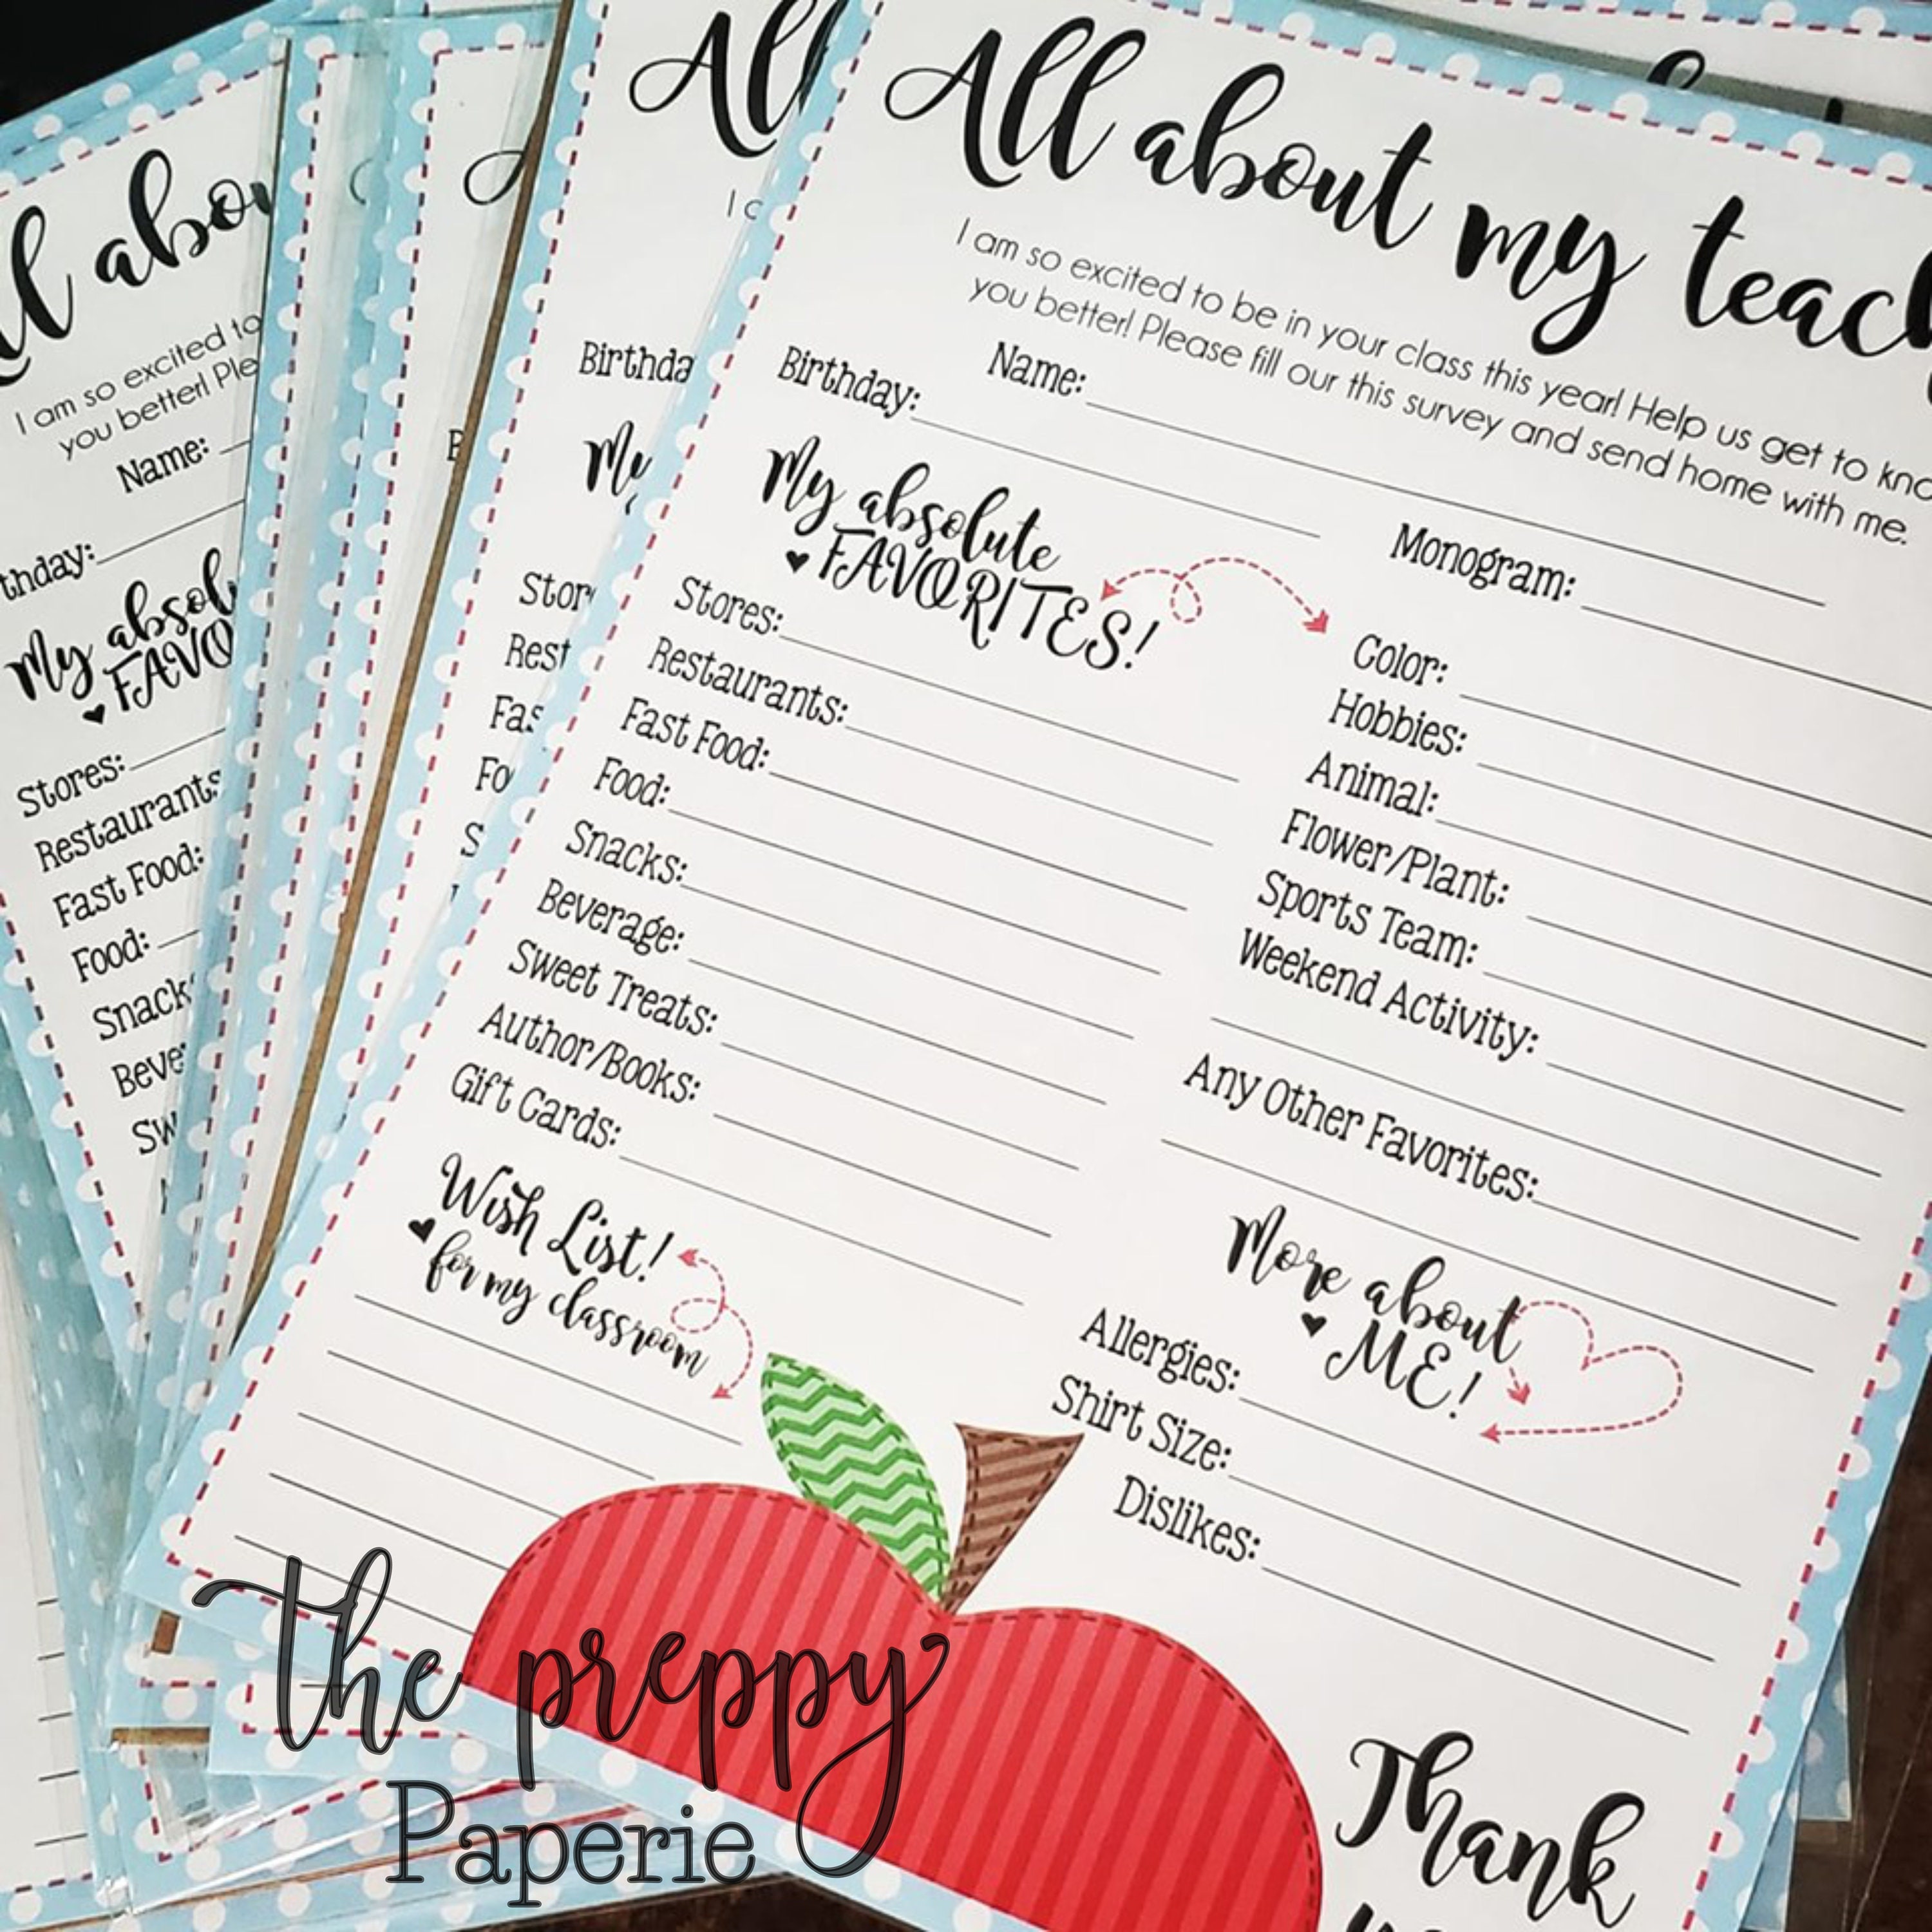 All about my teac
I am so excited to be in your class this year! Help us get to kno
you better! Please fill our this survey and send home with me.
Name:
Birthday:
Monogram:
My absolute
FAVORITES!
Stores:
Restaurants:
Fast Food:
Food:
Snacks:
Beverage:
Sweet Treats:
Author/Books:
Gift Cards:
Color:
Hobbies:
Animal:
Flower/Plant:
Sports Team:
Weekend Activity:
Any Other Favorites:
Wish List!
for my classroom
More about
ME!
Allergies:
Shirt Size:
Dislikes:
Thank
the preppy
Paperie
All
I a
Birthda
My
Stor
Rest
Fas
Fo
S
ll abou
I am so excited to
you better! Ple
Name:
thday:
My absol
FAVO
Stores:
Restaurants
Fast Food:
Food:
Snack
Beve
Sw